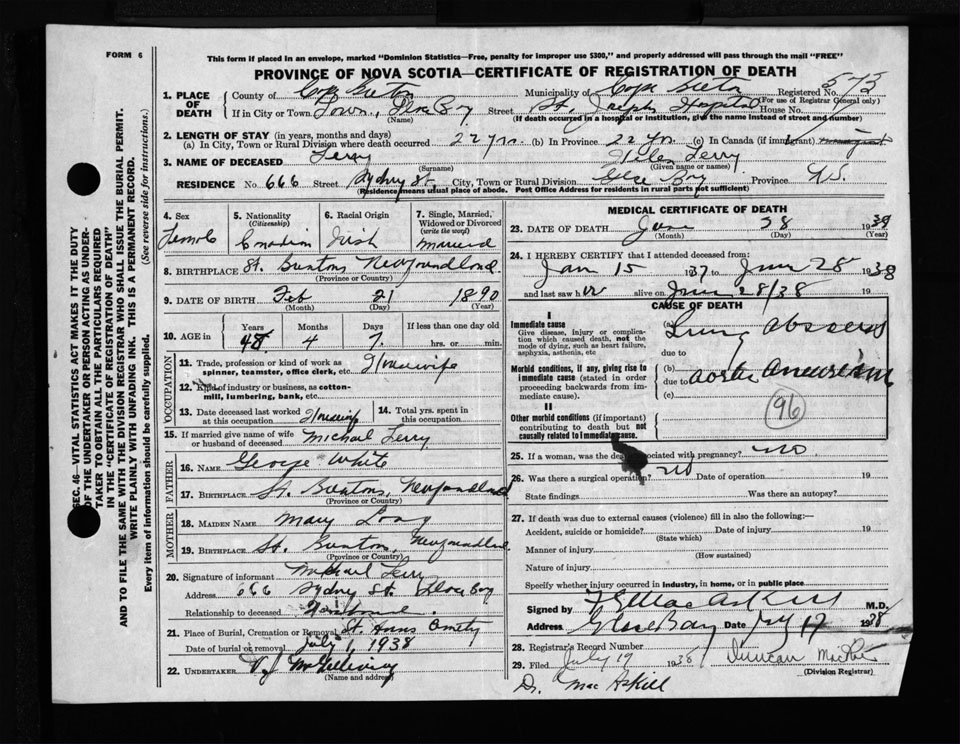 FORM 6
This form if placed in an envelope, marked "Dominion Statistics—Free, penalty for improper use $300," and properly addressed will pass through the mail "FREE"
PROVINCE OF NOVA SCOTIA—CERTIFICATE OF REGISTRATION OF DEATH
1. PLACE OF DEATH County of Cape Breton Municipality of Cape Breton Registered No. 573
(For use of Registrar General only)
If in City or Town Town, Glace Bay Street St. Joseph Hospital House No.
(Name) (If death occurred in a hospital or institution, give the name instead of street and number)
2. LENGTH OF STAY (in years, months and days)
(a) In City, Town or Rural Division where death occurred 22 yrs. (b) In Province 22 yrs. (c) In Canada (if immigrant)
3. NAME OF DECEASED Terry Helen Terry
(Surname) (Given name or names)
RESIDENCE No. 666 Street Sydney St. City, Town or Rural Division Glace Bay Province N.S.
(Residence means usual place of abode. Post Office Address for residents in rural parts not sufficient)
4. Sex Female
5. Nationality (Citizenship) Canadian
6. Racial Origin Irish
7. Single, Married, Widowed or Divorced (write the word) Married
8. BIRTHPLACE St. Newfoundland
(Province or Country)
9. DATE OF BIRTH Feb 21 1890
(Month) (Day) (Year)
10. AGE in Years 48 Months 4 Days 7. If less than one day old hrs. or min.
OCCUPATION
11. Trade, profession or kind of work as spinner, teamster, office clerk, etc. Housewife
12. Kind of industry or business, as cotton-mill, lumbering, bank, etc.
13. Date deceased last worked at this occupation Housewife
14. Total yrs. spent in this occupation
15. If married give name of wife or husband of deceased Michael Terry
FATHER
16. NAME George White
17. BIRTHPLACE St. Newfoundland
(Province or Country)
MOTHER
18. MAIDEN NAME Mary Long
19. BIRTHPLACE St. Newfoundland
(Province or Country)
20. Signature of informant Michael Terry
Address 666 Sydney St. Glace Bay
Relationship to deceased Husband.
21. Place of Burial, Cremation or Removal St. Anns Cemty
Date of burial or removal July 1, 1938
22. UNDERTAKER V. J. McGillivray
(Name and address)
MEDICAL CERTIFICATE OF DEATH
23. DATE OF DEATH June 28 1938
(Month) (Day) (Year)
24. I HEREBY CERTIFY that I attended deceased from:
Jan 15 1937 to June 28 1938
and last saw her alive on June 28/38 19
CAUSE OF DEATH
I
Immediate cause
Give disease, injury or complication which caused death, not the mode of dying, such as heart failure, asphyxia, asthenia, etc
(a) Lung abscess
due to
Morbid conditions, if any, giving rise to immediate cause (stated in order proceeding backwards from immediate cause).
(b)
due to aortic aneurism
(c)
96
II
Other morbid conditions (if important) contributing to death but not causally related to immediate cause.
25. If a woman, was the death associated with pregnancy? no
26. Was there a surgical operation? no Date of operation 19
State findings Was there an autopsy?
27. If death was due to external causes (violence) fill in also the following:—
Accident, suicide or homicide? Date of injury 19
(State which)
Manner of injury
(How sustained)
Nature of injury
Specify whether injury occurred in industry, in home, or in public place
Signed by MacAskill M.D.
Address Glace Bay Date July 17 1938
28. Registrar's Record Number
29. Filed July 19 1938 Duncan
(Division Registrar)
Dr. MacAskill
SEC. 46—VITAL STATISTICS ACT MAKES IT THE DUTY
OF THE UNDERTAKER OR PERSON ACTING AS UNDERTAKER TO OBTAIN ALL THE PARTICULARS REQUIRED
IN THE "CERTIFICATE OF REGISTRATION OF DEATH"
AND TO FILE THE SAME WITH THE DIVISION REGISTRAR WHO SHALL ISSUE THE BURIAL PERMIT.
WRITE PLAINLY WITH UNFADING INK. THIS IS A PERMANENT RECORD.
Every item of information should be carefully supplied. (See reverse side for instructions.)